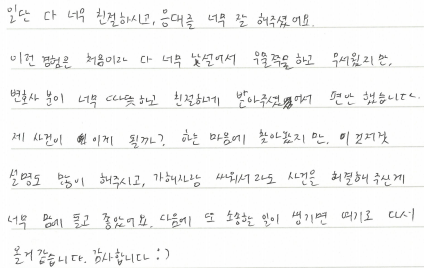 일단 다 너무 친절하시고, 응대를 너무 잘 해주셨어요.
이런 경험은 처음이라 다 너무 낯설어서 우물쭈물하고 무서웠지만,
변호사 분이 너무 따뜻하고 친절하게 받아주셔서 편안 했습니다.
제 사건이 이게 될까? 하는 마음에 찾아왔지만, 이것저것
설명도 많이 해주시고, 가해자랑 싸워서라도 사건을 해결해 주신게
너무 맘에 들고 좋았어요. 다음에 또 소송할 일이 생기면 여기로 다시
올거 같습니다. 감사합니다 :)